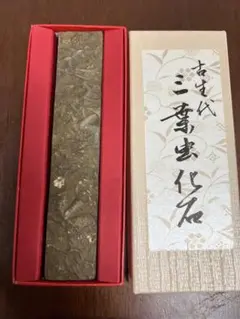 古生代
三葉虫化石